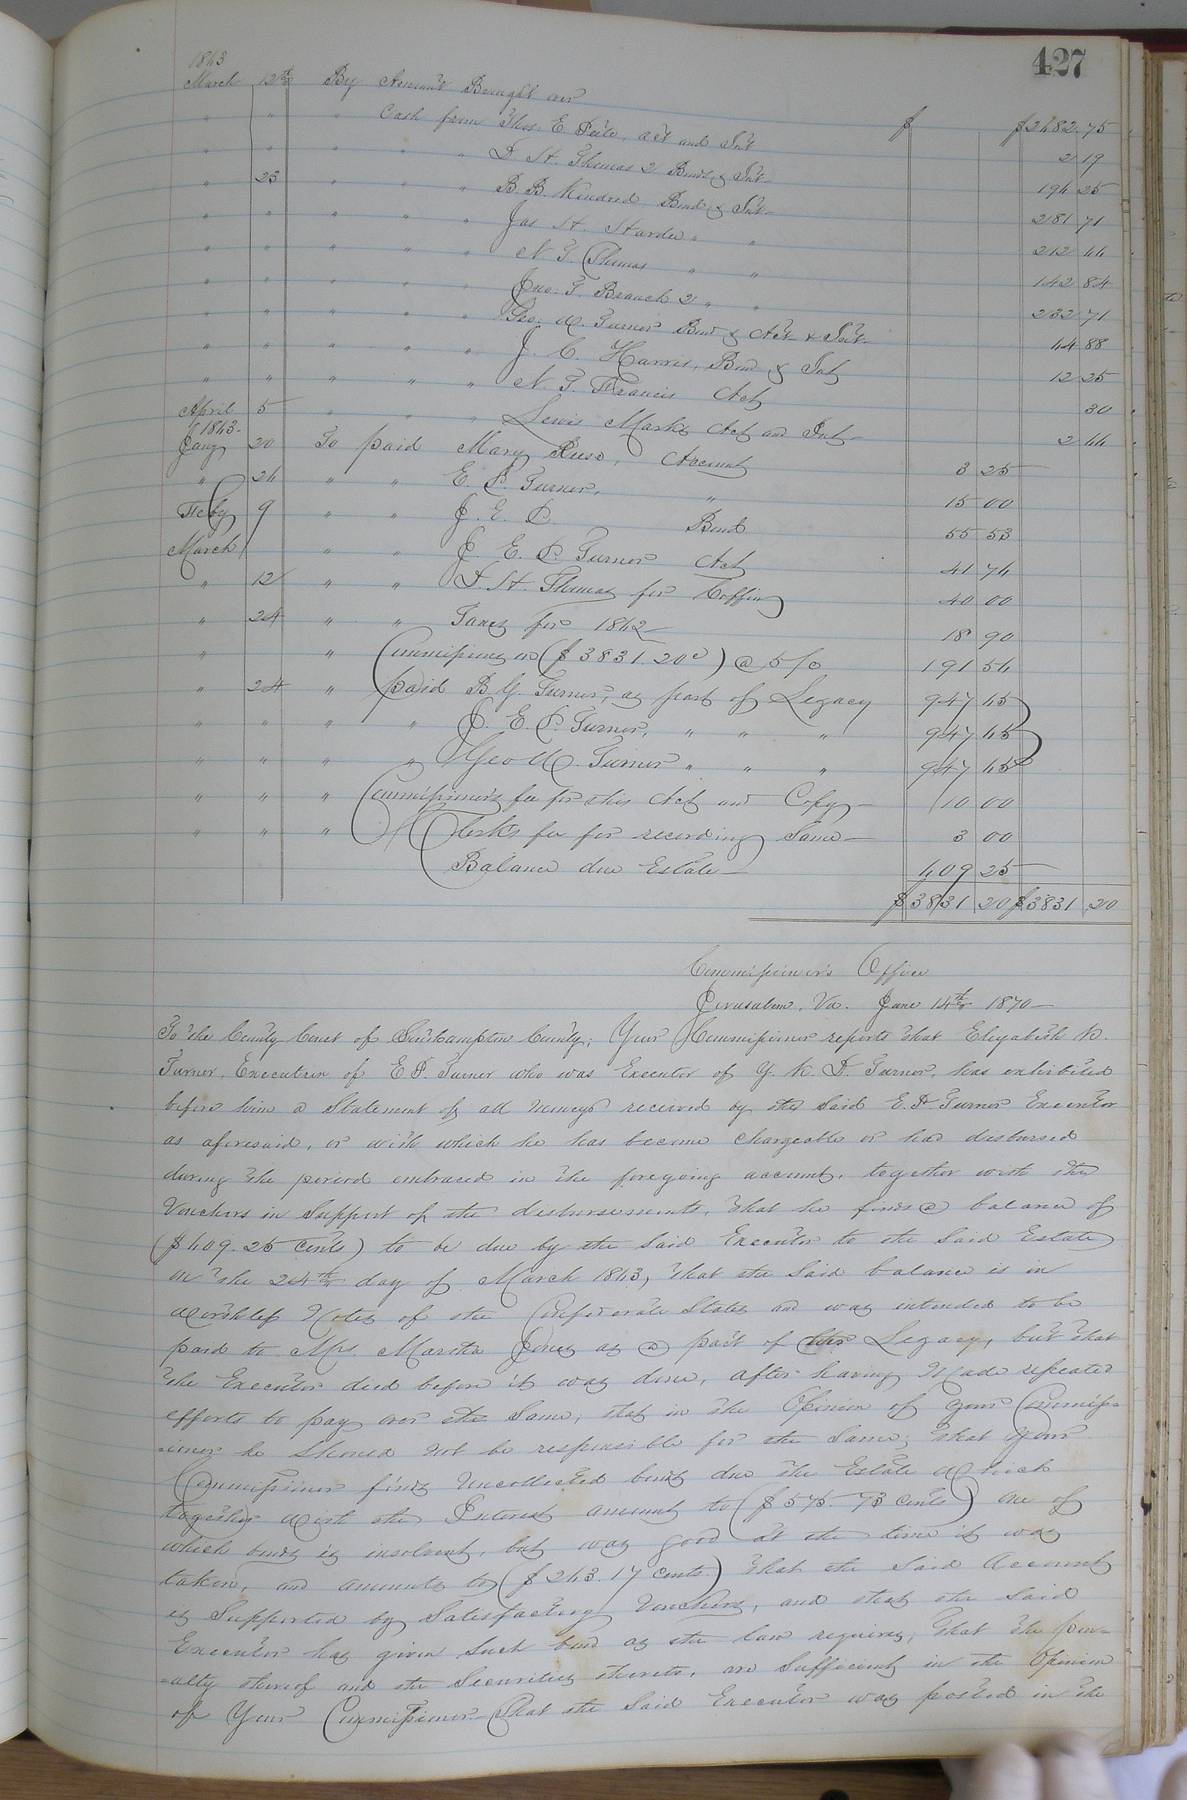 427
1863
March 12th By Amount Brought over $ $2482.75
" " " Cash from Thos. E. Peete, act and Int 2 19
" " " " " D. H. Thomas 2 Bonds & Int 194 25
" 23 " " " B. B. Kindred Bond & Int 281 71
" " " " " Jas H. " " 212 44
" " " " " N. T. Thomas " " 142 84
" " " " " Jno. T. Branch 2 " " 232 71
" " " " " Geo. W. Turner Bond & Act & Int 44 88
" " " " " J. C. Harris, Bond & Int 12 25
" " " " " N. T. Francis Act 30
April 5 " " " Lewis Marks Act and Int 2 44
1863
Jany 20 To paid Mary Account 3 25
" 24 " " E. P. Turner, " 15 00
Feby 9 " " J. E. P. Bond 55 53
March " " J. E. P. Turner Act 41 74
" 12 " " D. H. Thomas for Coffin 40 00
" 24 " " Taxes for 1862 18 90
" " Commissions on ($3831.20c) @ 5/o 191 54
" 24 " paid B. G. Turner, as part of Legacy 947 45
" " " " J. E. P. Turner, " " " 947 45
" " " " Geo W. Turner " " " 947 45
" " " Commissioner's fee for this Act and Copy 10 00
" " " Clerks fee for recording Same 3 00
Balance due Estate 609 25
$3831 20 $3831 20
Commissioner's Office
Jerusalem, Va. June 14th 1870
To the County Court of Southampton County; Your Commissioner reports that Elizabeth
Turner, Executrix of E P. Turner who was Executor of Turner, has exhibited
before him a Statement of all moneys received by the Said E. P. Turner Executor
as aforesaid, or with which he has become chargeable or had disbursed
during the period embraced in the foregoing account, together with the
Vouchers in Support of the disbursements, that he finds a balance of
($609.25 cents) to be due by the Said Executor to the Said Estate
on the 24th day of March 1863, that the Said balance is in
worthless Notes of the Confederate States and was intended to be
paid to Mrs. Martha Jones as a part of her Legacy, but that
the Executor died before it was done, after having made repeated
efforts to pay over the Same; that in the Opinion of your Commiss-
-ioner he Should not be responsible for the Same; that your
Commissioner finds Uncollected bonds due the Estate which
together with the Interest amount to ($575.73 cents) one of
which bonds is insolvent, but was good at the time it was
taken, and amounts to ($263.17 cents.) that the Said Account
is Supported by Satisfactory Vouchers, and that the Said
Executor has given Such bond as the law requires; that the pen-
-alty thereof and the Securities thereto, are Sufficient in the Opinion
of Your Commissioner. That the Said Executor was posted in the